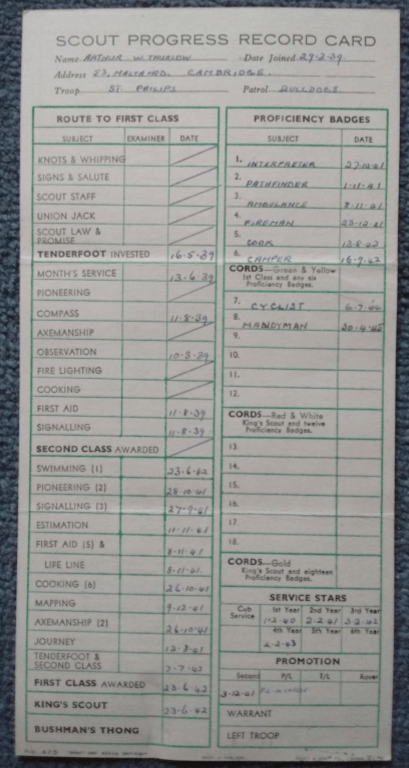 SCOUT PROGRESS RECORD CARD
Name ARTHUR W. THURLOW Date Joined 29-2-39
Address 23, MALTA RD. CAMBRIDGE.
Troop ST PHILIPS Patrol BULLDOGS
ROUTE TO FIRST CLASS
SUBJECT EXAMINER DATE
KNOTS & WHIPPING
SIGNS & SALUTE
SCOUT STAFF
UNION JACK
SCOUT LAW &
PROMISE
TENDERFOOT INVESTED 16-5-39
MONTH'S SERVICE 13-6-39
PIONEERING
COMPASS 11-8-39
AXEMANSHIP
OBSERVATION 10-5-39
FIRE LIGHTING
COOKING
FIRST AID 11-8-39
SIGNALLING 11-8-39
SECOND CLASS AWARDED
SWIMMING (1) 23-6-42
PIONEERING (2) 28-10-41
SIGNALLING (3) 27-9-41
ESTIMATION 11-11-41
FIRST AID (5) & 8-11-41
LIFE LINE 8-11-41
COOKING (6) 26-10-41
MAPPING 9-12-41
AXEMANSHIP (2) 26-10-41
JOURNEY 12-3-41
TENDERFOOT &
SECOND CLASS 7-7-42
FIRST CLASS AWARDED 23-6-42
KING'S SCOUT 23-6-42
BUSHMAN'S THONG
PROFICIENCY BADGES
SUBJECT DATE
1. INTERPRETER 27-10-41
2. PATHFINDER 1-11-41
3. AMBULANCE 8-11-41
4. FIREMAN 23-12-41
5. COOK 13-8-42
6. CAMPER 16-9-42
CORDS—Green & Yellow
1st Class and any six
Proficiency Badges.
7. CYCLIST 6-7-44
8. HANDYMAN 30-4-45
9.
10.
11.
12.
CORDS—Red & White
King's Scout and twelve
Proficiency Badges.
13.
14.
15.
16.
17.
18.
CORDS—Gold
King's Scout and eighteen
Proficiency Badges.
SERVICE STARS
Cub 1st Year 2nd Year 3rd Year
Service 1-2-40 2-2-41 3-2-42
4th Year 5th Year 6th Year
2-2-43
PROMOTION
Second P/L T/L Rover
3-12-41
WARRANT
LEFT TROOP